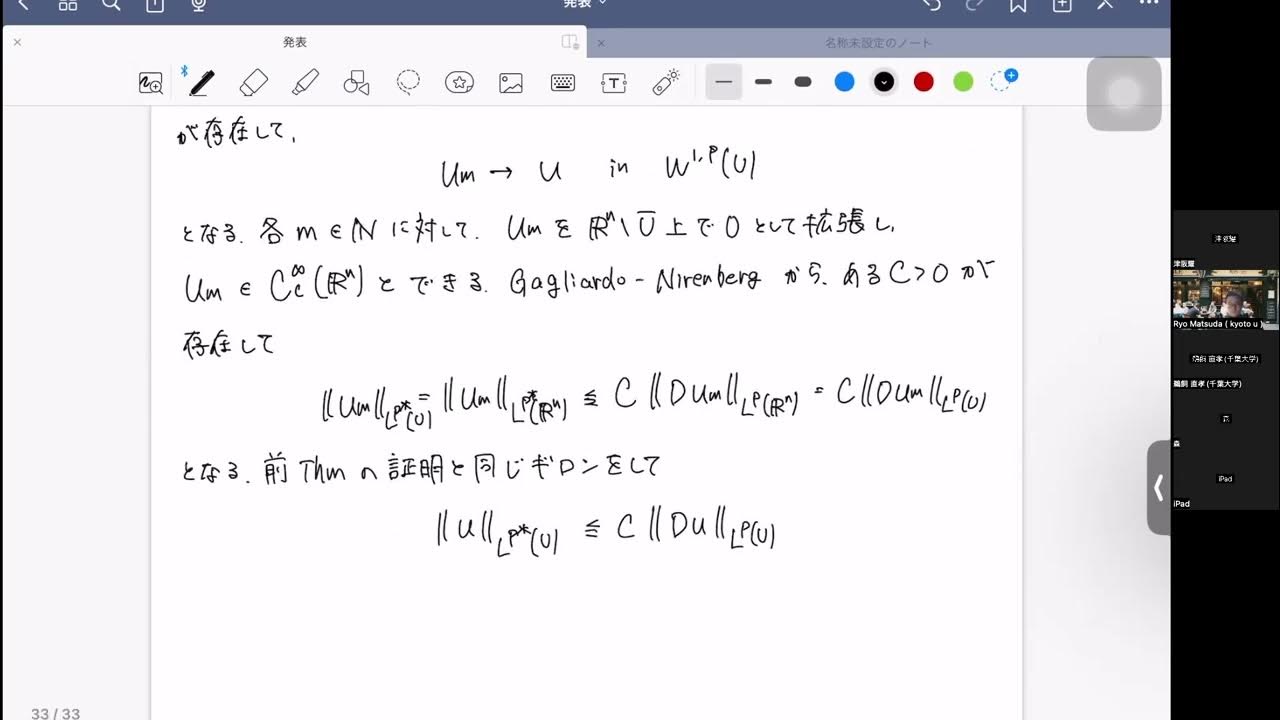 発表
発表
名称未設定のノート
が存在して,
Um → U in W^{1,p}(U)
となる. 各 m ∈ ℕ に対して. Um を ℝⁿ\Ū 上で 0 として拡張し,
Um ∈ C_c^∞(ℝⁿ) とできる. Gagliardo-Nirenberg から, ある C > 0 が
存在して
‖Um‖_{L^{p*}(U)} = ‖Um‖_{L^{p*}(ℝⁿ)} ≦ C ‖DUm‖_{L^p(ℝⁿ)} = C ‖DUm‖_{L^p(U)}
となる. 前 Thm の証明と同じギロンをして
‖U‖_{L^{p*}(U)} ≦ C ‖DU‖_{L^p(U)}
33 / 33
津阪耀
Ryo Matsuda ( kyoto u )
鵜飼 直孝 (千葉大学)
鵜飼 直孝 (千葉大学)
森
森
iPad
iPad